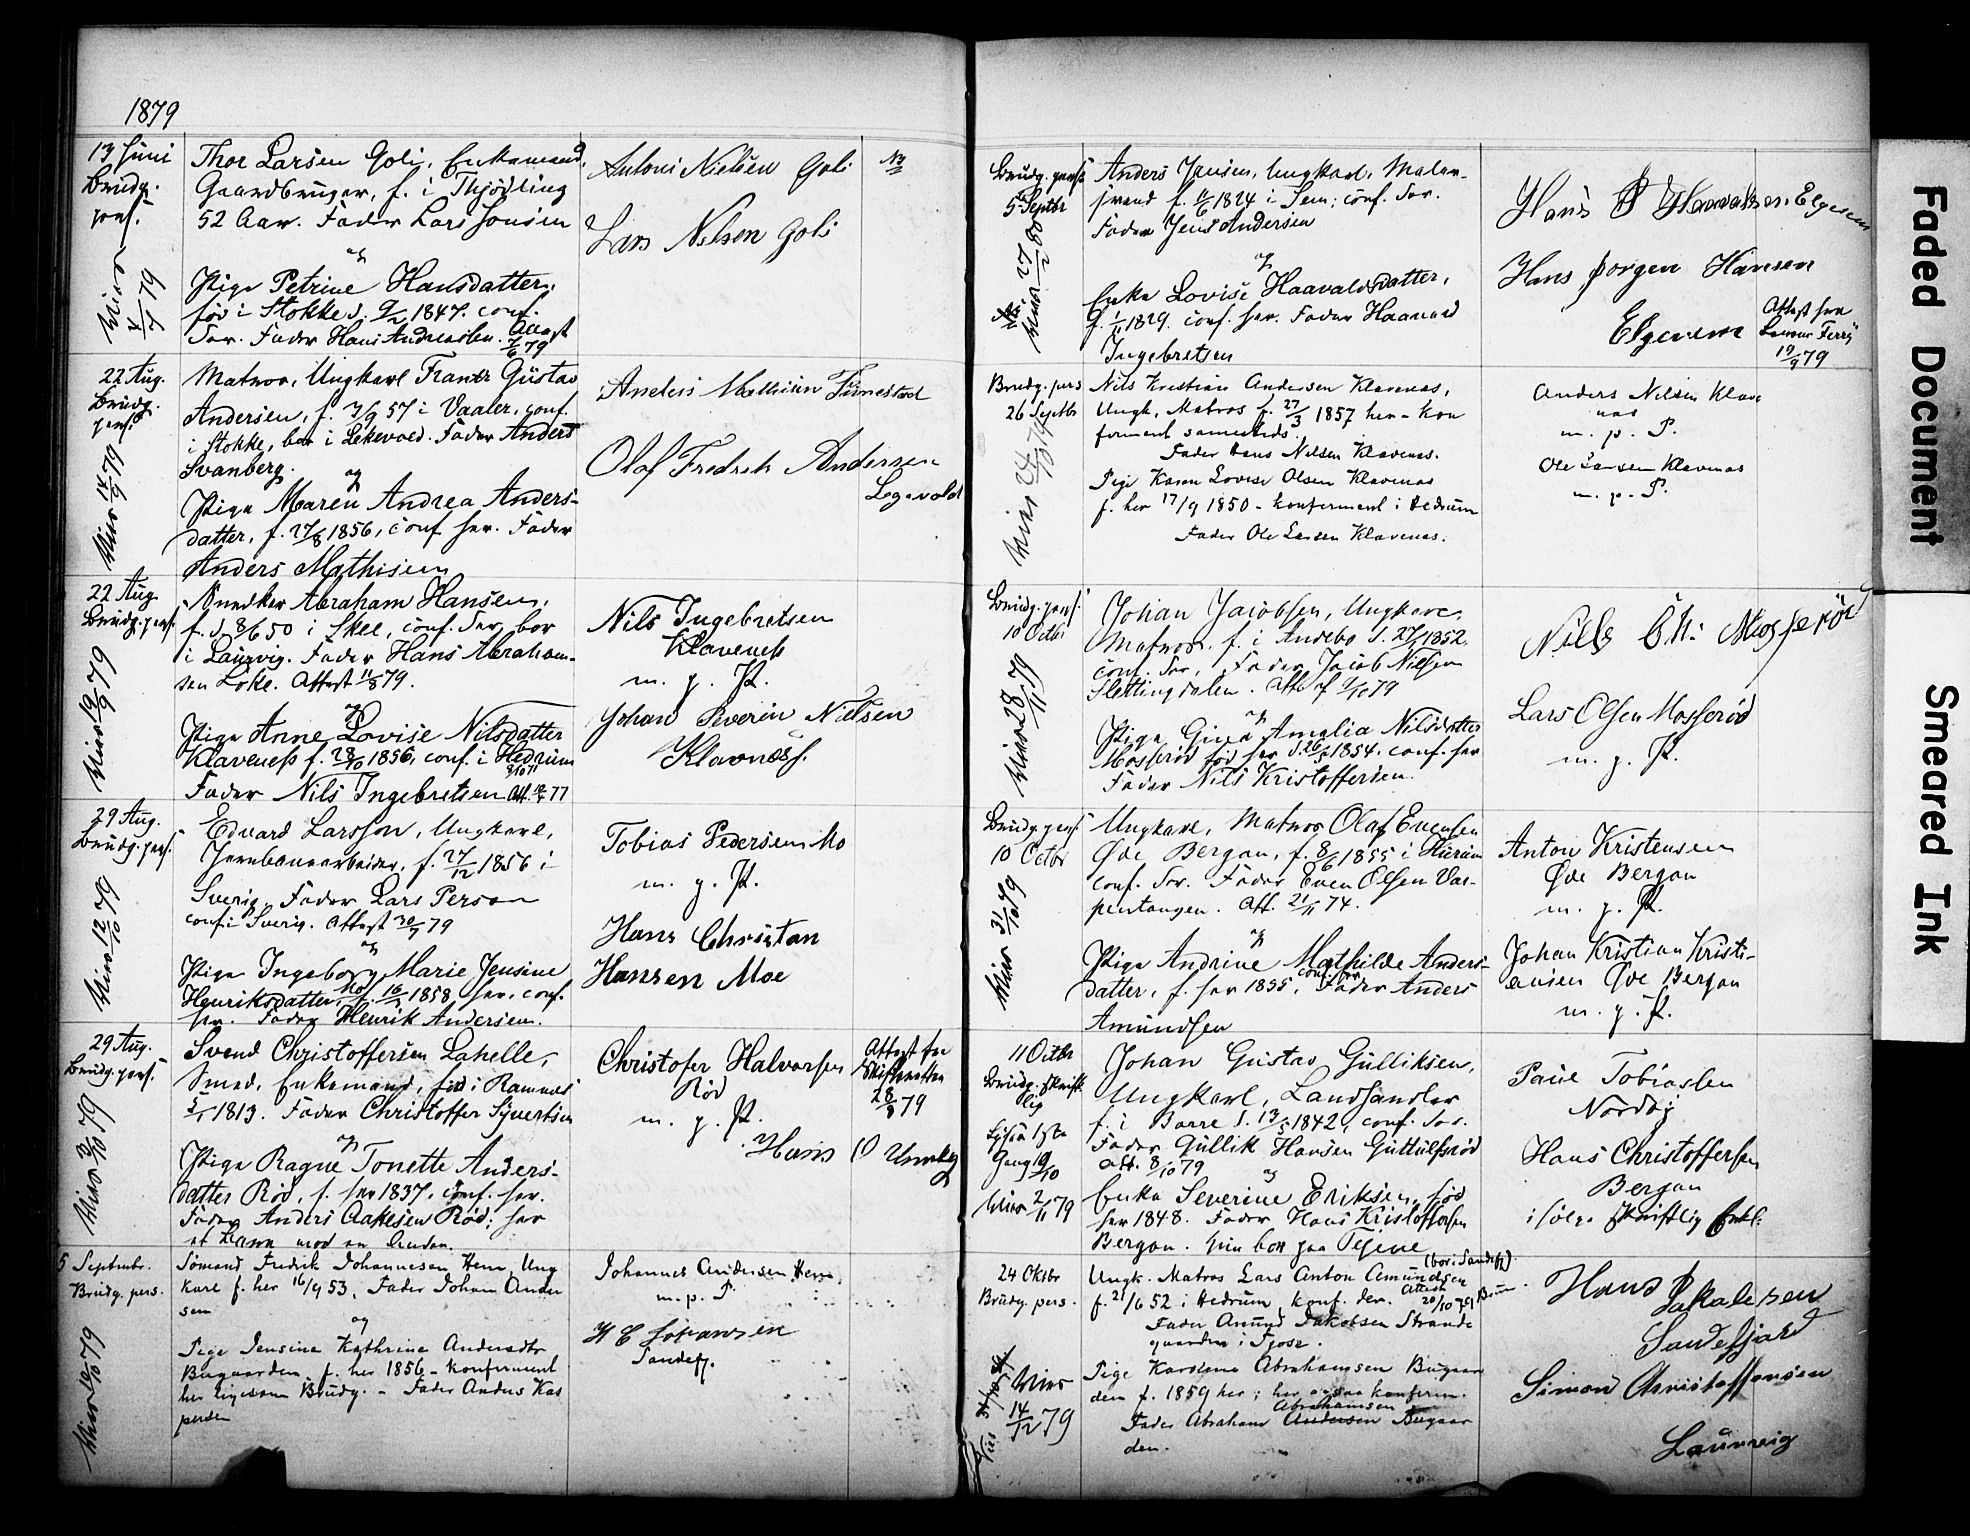 1879
13 Juni
Brudg.
pers.
Thor Larsen Goli, Enkemand,
Gaardbruger, f. i Thjødling
52 Aar. Fader Lars Jonsen
og
Pige Petrine Hansdatter,
fød i Stokke d. 9/2 1847. conf.
Sev. Fader Hans Andreassen. Attest
7/6 79
Antoni Nielsen Goli
Lars Nilsen Goli
22 Aug.
Brudg.
pers.
Viet 14/9 79
Matros, Ungkarl Frantz Gustav
Andersen, f. 7/9 57 i Vaaler, conf.
i Stokke, bor i Lekevold. Fader Anders
Svanberg.
og
Pige Maren Andrea Anders-
datter, f. 27/8 1856, conf her. Fader
Anders Mathisen
Anders Mathisen
Olaf Fredrik Andersen
22 Aug
Brudg. pers.
Viet 19/9 79
Snedker Abraham Hansen,
f. d. 8/6 50 i Skee, conf. bor
i Laurvig. Fader Hans Abraham-
sen Loke. Attest 11/8 79.
og
Pige Anne Lovise Nilsdatter
Klaveness f. 28/10 1856, conf. i Hedrum
Fader Nils Ingebretsen Att. 77
Nils Ingebretsen
Klaveness
m. p. P.
Johan Severin Nielsen
Klavness.
29 Aug.
Brudg. pers.
Viet 12/10 79
Edvard Larsson, Ungkarl,
Jernbanearbeider, f. 27/12 1856 i
Sverig. Fader Lars Person
conf. i Sverig. Attest 30/7 79
og
Pige Ingeborg Marie Jensine
Henriksdatter, Mo f. 16/ 1858 her, conf.
her. Fader Henrik Andersen.
Tobias Pedersen Mo
m. p. P.
Hans Christian
Hansen Moe
29 Aug.
Brudg. pers.
Viet 3/10 79
Svend Christoffersen Lahelle,
Smed, Enkemand, fød i Ramnæs
1813. Fader Christoffer Syvertsen
og
Pige Ragne Tonette Anders-
datter Rød, f. her 1837, conf. her.
Fader Anders Aakesen Rød; har
et Barn med en Anden.
Christofer Halvorsen
Rød
m. p. P.
Hans O
Attest fra
Skifteretten
28/8 79
5 Septembr.
Brudg. pers.
Viet 79
Sømand Fredrik Johannesen Hem, Ung
karl f. her 16/9 53, Fader Johan Ander
sen
og
Pige Jensine Kathrine Andersdtr
Bugaarden, f. her 1856 - konfirmeret
her ligesom Brudg. - Fader Anders Kas
persen
Johannes Andersen Hem
m. p. P.
H C Johansen
Sandefj.
Brudg. pers.
5 Septbr
Anders Jensen, Ungkarl, Maler-
svend f. 11/6 1824 i Sem; conf. Sev.
Fader Jens Andersen
og
Enke Lovise Haavaldsdatter,
f. 1/11 1829. conf. her. Fader Haavald
Ingebretsen
Hans P Haavaldsen. Elgesem
Hans Jørgen Hansen
Elgesem
Attest fra
19/9 79
Brudg. pers
26 Septbr
Nils Kristian Andersen Klavenæs,
Ungk. Matros f. 27/3 1857 her - kon
firmeret sammesteds.
Fader Hans Nilsen Klavenæs.
Pige Karen Lovise Olsen Klavenæs
f. her 17/9 1850 - konfirmeret i Hedrum
Fader Ole Larsen Klavenæs.
Anders Nilsen Klave
næs
m. p. P.
Ole Larsen Klavenæs
m. p. P.
Brudg. pers.
10 Octbr
Viet 28/11 79
Johan Jacobsen, Ungkarl,
Matros, f. i Andebo d. 27/1 1852.
conf. Fader Jacob Nilsen
Slettingdalen. Att. af 9/10 79
og
Pige Gina Amalia Nilsdatter
Mosserød fød her d. 26/ 1854. conf. her
Fader Nils Kristoffersen.
Nils Ch: Mosserød
Lars Olsen Mosserød
m. p. P.
Brudg. pers.
10 Octbr
Viet 31/10 79
Ungkarl, Matros Olaf Evensen
Øde Bergan, f. 8/6 1855 i Hurum
conf. Sev. Fader Even Olsen Ver-
pentangen. Att. 21/11 74.
og
Pige Andrine Mathilde Anders-
datter, f. her 1855, conf. her. Fader Anders
Amundsen
Anton Kristensen
Øde Bergan
m. p. P.
Johan Kristian Kristi-
ansen Øde Bergan
m. p. P.
11 Octbr
Brudg. skrift-
lig
Lysn. 1ste
Gang 19/10
Viet 2/11 79
Johan Gustav Gulliksen,
Ungkarl, Landhandler
f. i Borre d. 13/5 1842, conf.
Fader Gullik Hansen Guttulfsrød
Att. 8/10 79
og
Enke Severine Eriksen, fød
her 1848. Fader Hans Kristoffersen
Bergan. Hun bor paa Tjeine
Paul Tobiassen
Nordby
Hans Christoffersen
Bergan
ifølge skriftlig Erkl.
24 Oktbr
Brudg. pers.
Viet
14/12 79
(bor i Sandefj).
Ungk. Matros Lars Anton Amundsen
f. 21/6 52 i Hedrum, konf. der. Attest
20/10 79
Fader Amund Jakobsen Strande
gaarden i Tjose.
Pige Karoline Abrahamsen Bugaar
den f. 1859 her; her ogsaa konfirm.
Abrahamsen
Fader Abraham Andersen Bugaar
den.
Hans Jakobsen
Sandefjord
Simon Christoffersen
Laurvig
Faded Document
Smeared Ink